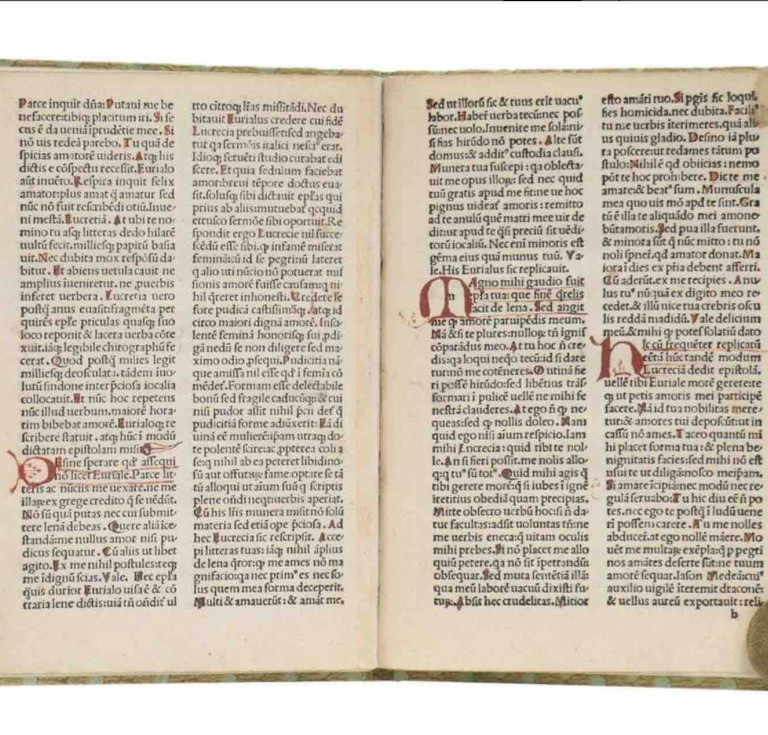 Parce inquit dña: Putaui me be
nefacere: tibiqȝ placitum iri. Si se
cus ē da ueniā īprudētie mee. Si
nō uis redeā parebo. Tu quā de
spicias amatorē uideris. Atqȝ his
dictis e cōspectu recessit. Eurialo
aūt inuēto. Respira inquit felix
amator: plus amat q̃ amatur sed
nūc nō fuit rescribēdi otiū. Inue
ni mestā. Lucretiā. At ubi te no-
mino tuasqȝ litteras dedo hilarē
uultū fecit. milliesqȝ papirū basia
uit. Nec dubita mox respōsū da-
bitur. Et abiens uetula cauit ne
amplius īueniretur. ne puerbis
inferet uerbera. Lucretia uero
postq̃ anus euasit: fragmēta per
quirēs epl̃e pticulas quasqȝ suo
loco reponit & lacera uerba cōte
xuit. iāqȝ legibile chirographū fe
cerat. Quod postq̃ milies legit
milliesqȝ deosculata. tādem inuo-
lutū sindone inter p̄ciosa iocalia
collocauit. Et nūc hoc repetens
nūc illud uerbum. maiorē hora-
tim bibebat amorē. Eurialoqȝ re
scribere statuit. atqȝ hūc ī modū
dictatam epistolam misit
Desine sperare qd̓ assequi
nō licet Euriale. Parce lit-
teris ac nūciis me uexare. ne me
illarȝ ex grege credito q̃ se uēdūt.
Nō sū quā putas nec cui submit-
tere lenā debeas. Quere aliā ice-
standā: me nullus amor nisi pu-
dicus sequatur. Cū aliis ut libet
agito. Ex me nihil postules: teqȝ
me īdignū scias. Vale. Hec epl̃a
quis durior Eurialo uisa ē & cō
traria lene dictis: uiā tn̄ ōndit ul
tro citroqȝ l̃ras missitādi. Nec du
bitauit Eurialus credere cui fidē
Lucrecia prebuisset: sed angeba-
tur qa sermōis italici nesci⁹ erat.
Idioqȝ feruēti studio curabat edi
scere. Et quia sedulum faciebat
amor: breui tēpore doctus eua-
sit. solusqȝ sibi dictauit epl̃as qui
prius ab aliis mutuebat⁹ qcquid
etrusco sermōe sibi oportuit. Re
spondit ergo Lucrecie nil succe-
sēdū esse sibi. qȝ infamē miserat
feminā cū id se pegrinū lateret
q alio uti nūcio nō potuerat mis
sionis amorē fuisse causam: q ni
hil q̃reret inhonesti. Credere se
fore pudicā castissimāqȝ. atqȝ id
circo maiori dignā amore. Inso-
lentē feminā honorisqȝ sui p̱di-
gā nedū se non diligere sed ma-
ximo odio p̱sequi. Pudicitia nā-
que amissa nil esse qd̓ ī femīa cō
mēdet̃. Formam esse delectabile
bonū sed fragile caducūqȝ: & cui
nisi pudor assit nihil p̄cii esse q̃
pudicitiā forme adiūxerit: Ea di
uinā eē mulierē: ipam utraqȝ do-
te polentē scire: ac p̱pterea coli a
se: qȝ nihil ab ea peteret libidino-
sū aut offuturȝ fame: optare se tā
tū alloqui ut aium suū q scriptis
plene ōn̄di nequit uerbis aperiat.
Cū his l̃ris munera misit nō solū
materia sed etiā ope p̄ciosa. Ad
hec Lucrecia sic rescripsit. Acce-
pi litteras tuas: iāqȝ nihil āplius
de lena q̃ror: qȝ me ames nō ma
gnifacio: qa nec prim⁹ es nec so-
lus quem mea forma deceperit.
Multi & amauerūt: & amāt me.
Sed ut illorū sic & tuus erit uacu⁹
labor. Haber̃ uerba tecū: nec pos-
sū: nec uolo. Inuenire me solā: ni-
si fias hirūdo nō potes. Alte sūt
domus: & addit⁹ custodia clausi.
Munera tua suscepi: qa oblecta-
uit me opus illorȝ: sed nec quid
tuū gratis apud me fit: ne ue hoc
pignus uideat̃ amoris: remitto
ad te anulū quē matri mee uir de
ditut apud te q̄si preciū sit uēdi-
torū iocaliū. Nec enī minoris est
gēma eius quā munus tuū. Va-
le. His Eurialus sic replicauit.
Magno mihi gaudio fuit
epl̃a tua: que finē q̃relis
facit de lena. Sed angit
me qȝ amorē parūpēdis meum.
Nā & si te plures: nullorȝ tn̄ ignis
cōpatādus meo. At tu hoc n̄ cre-
dis: qa loqui neqȝ o tecū: id si dare
tur: nō me cotēneres. O utinā fie
ri posse hirūdo: sed libētius trās-
formari ī pulicē uellē ne mihi fe
nestrā clauderes. At ego n̄ q̱ ne-
queas: sed q̱ nollis doleo. Nam
quid ego nisi aium respicio. Iam
mihi Lucrecia: quid tibi te nol-
le. An si fieri possit. me nolis allo-
qui: q tu⁹ sū tot⁹. Quid mihi agis q̱
tibi gerere morē: q si iubes ī ignē
ire: citius obediā quam precipias.
Mitte obsecro uerbū hoc: si n̄ da-
tur facultas: adsit uoluntas tn̄: ne
me uerbis eneca: q uitam oculis
mihi prebes. Si nō placet me allo
quiū petere. qa nō sit īpetrandū:
obsequar. Sed muta sentētiā illā:
qua meū laborē uacuū dixisti fu-
turȝ. Absit hec crudelitas. Mitior
esto amāti tuo. Si pgis sic loqui
fies homicida. nec dubita. Facili⁹
tu me uerbis iterimeres. quā ali-
us quiuis gladio. Desino iā plu-
ra poscere: ut redames tātum po
stulo: Nihil ē qd̓ obiicias: nemo
pōt te hoc prohibere. Dicte me
amare & beat⁹ sum. Munuscula
mea quo uis mō apd̓ te sint. Gra
tū ē illa te aliquādo mei amone-
būt amoris. Sed pua illa fuerunt.
& minora sūt q̱ nūc mitto: tu nō
noli sp̄nei. qd̓ amator donat. Ma
iora ī dies ex p̄ria debent afferri.
Cū aderūt. ex me recipies. Anu-
lus tu⁹ nūquā ex digito meo re-
cedet. & illū uice tua crebris oscu
lis reddā madidū. Vale delicium
meū. & mihi q̱ potes solatiū dato
Hec cū frequēter replicatū
eēt: ī hūc tandē modum
Lucrecia dedit epistolā.
uellē tibi Euriale morē gerere: te
qȝ ut petis amoris mei participē
facere. Nā id tua nobilitas mere-
tur: & amores tui deposcūt: ut in
cassū nō ames. Taceo quantū mi
hi placet forma tua: & plena be-
nignitatis facies: sed mihi nō est
usui te ut diligā: nosco meipsam.
Si amare īcipiā nec modū nec re-
gulā seruabo: Tu hic diu eē n̄ po
tes. nec ego te postq̱ ī ludū uene
ri possem carere. A tu me nolles
abducei. at ego nollē māere. Mo
uēt me multarȝ exēpla: q̱ p pegri
nos amātes deserte sūt: ne tuum
amorē sequar. Iason Medeā: cui⁹
auxilio uigilē iteremit draconē:
& uellus aureū exportauit: reli
b